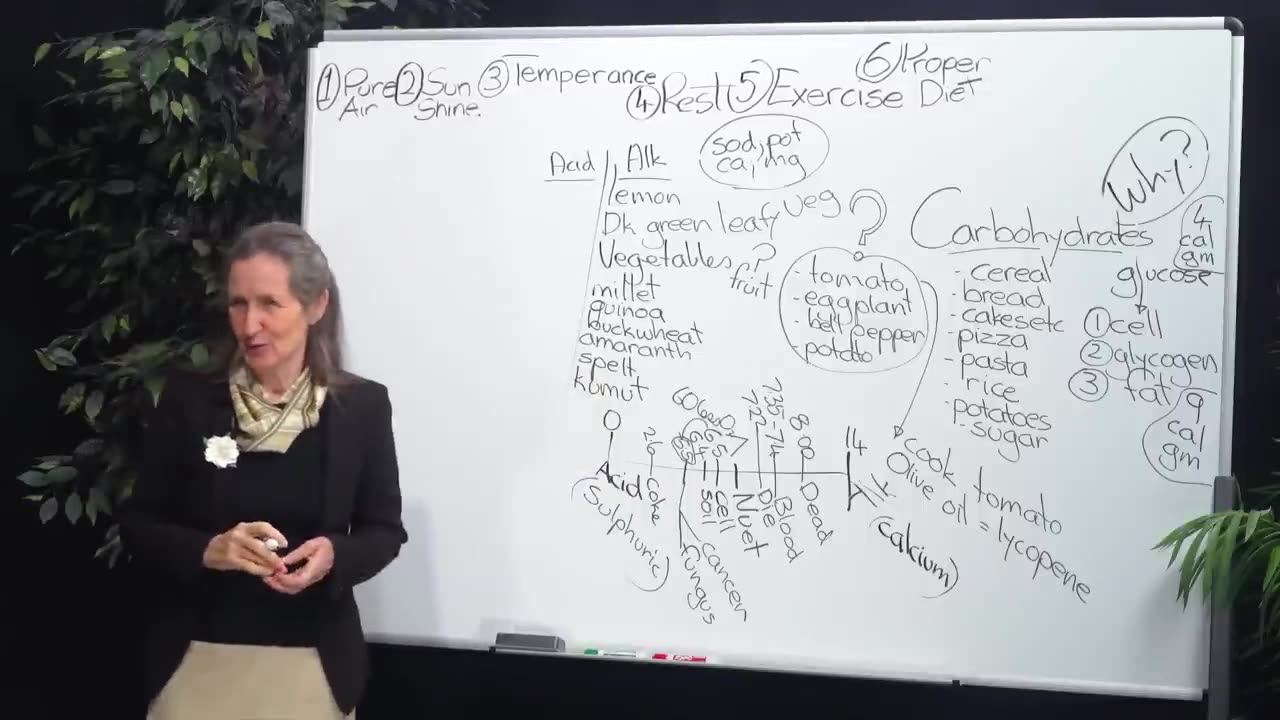 ① Pure Air
② Sun Shine.
③ Temperance
④ Rest
⑤ Exercise
⑥ Proper Diet
Acid | Alk
sod, pot
ca, mg
lemon
Dk green leafy veg
Vegetables ? fruit
millet
quinoa
buckwheat
amaranth
spelt
kamut
?
- tomato
- eggplant
- bell pepper
- potato
Carbohydrates
- cereal
- bread
- cakes etc
- pizza
- pasta
- rice
- potatoes
- sugar
Why?
4
cal
gm
glucose
① cell
② glycogen
③ fat
9
cal
gm
0
14
Acid
(Sulphuric)
Coke
Cancer
fungus
Soil
Cell
72
Diet
74
Blood
Dead
Alk
(Calcium)
cook tomato
Olive oil = lycopene